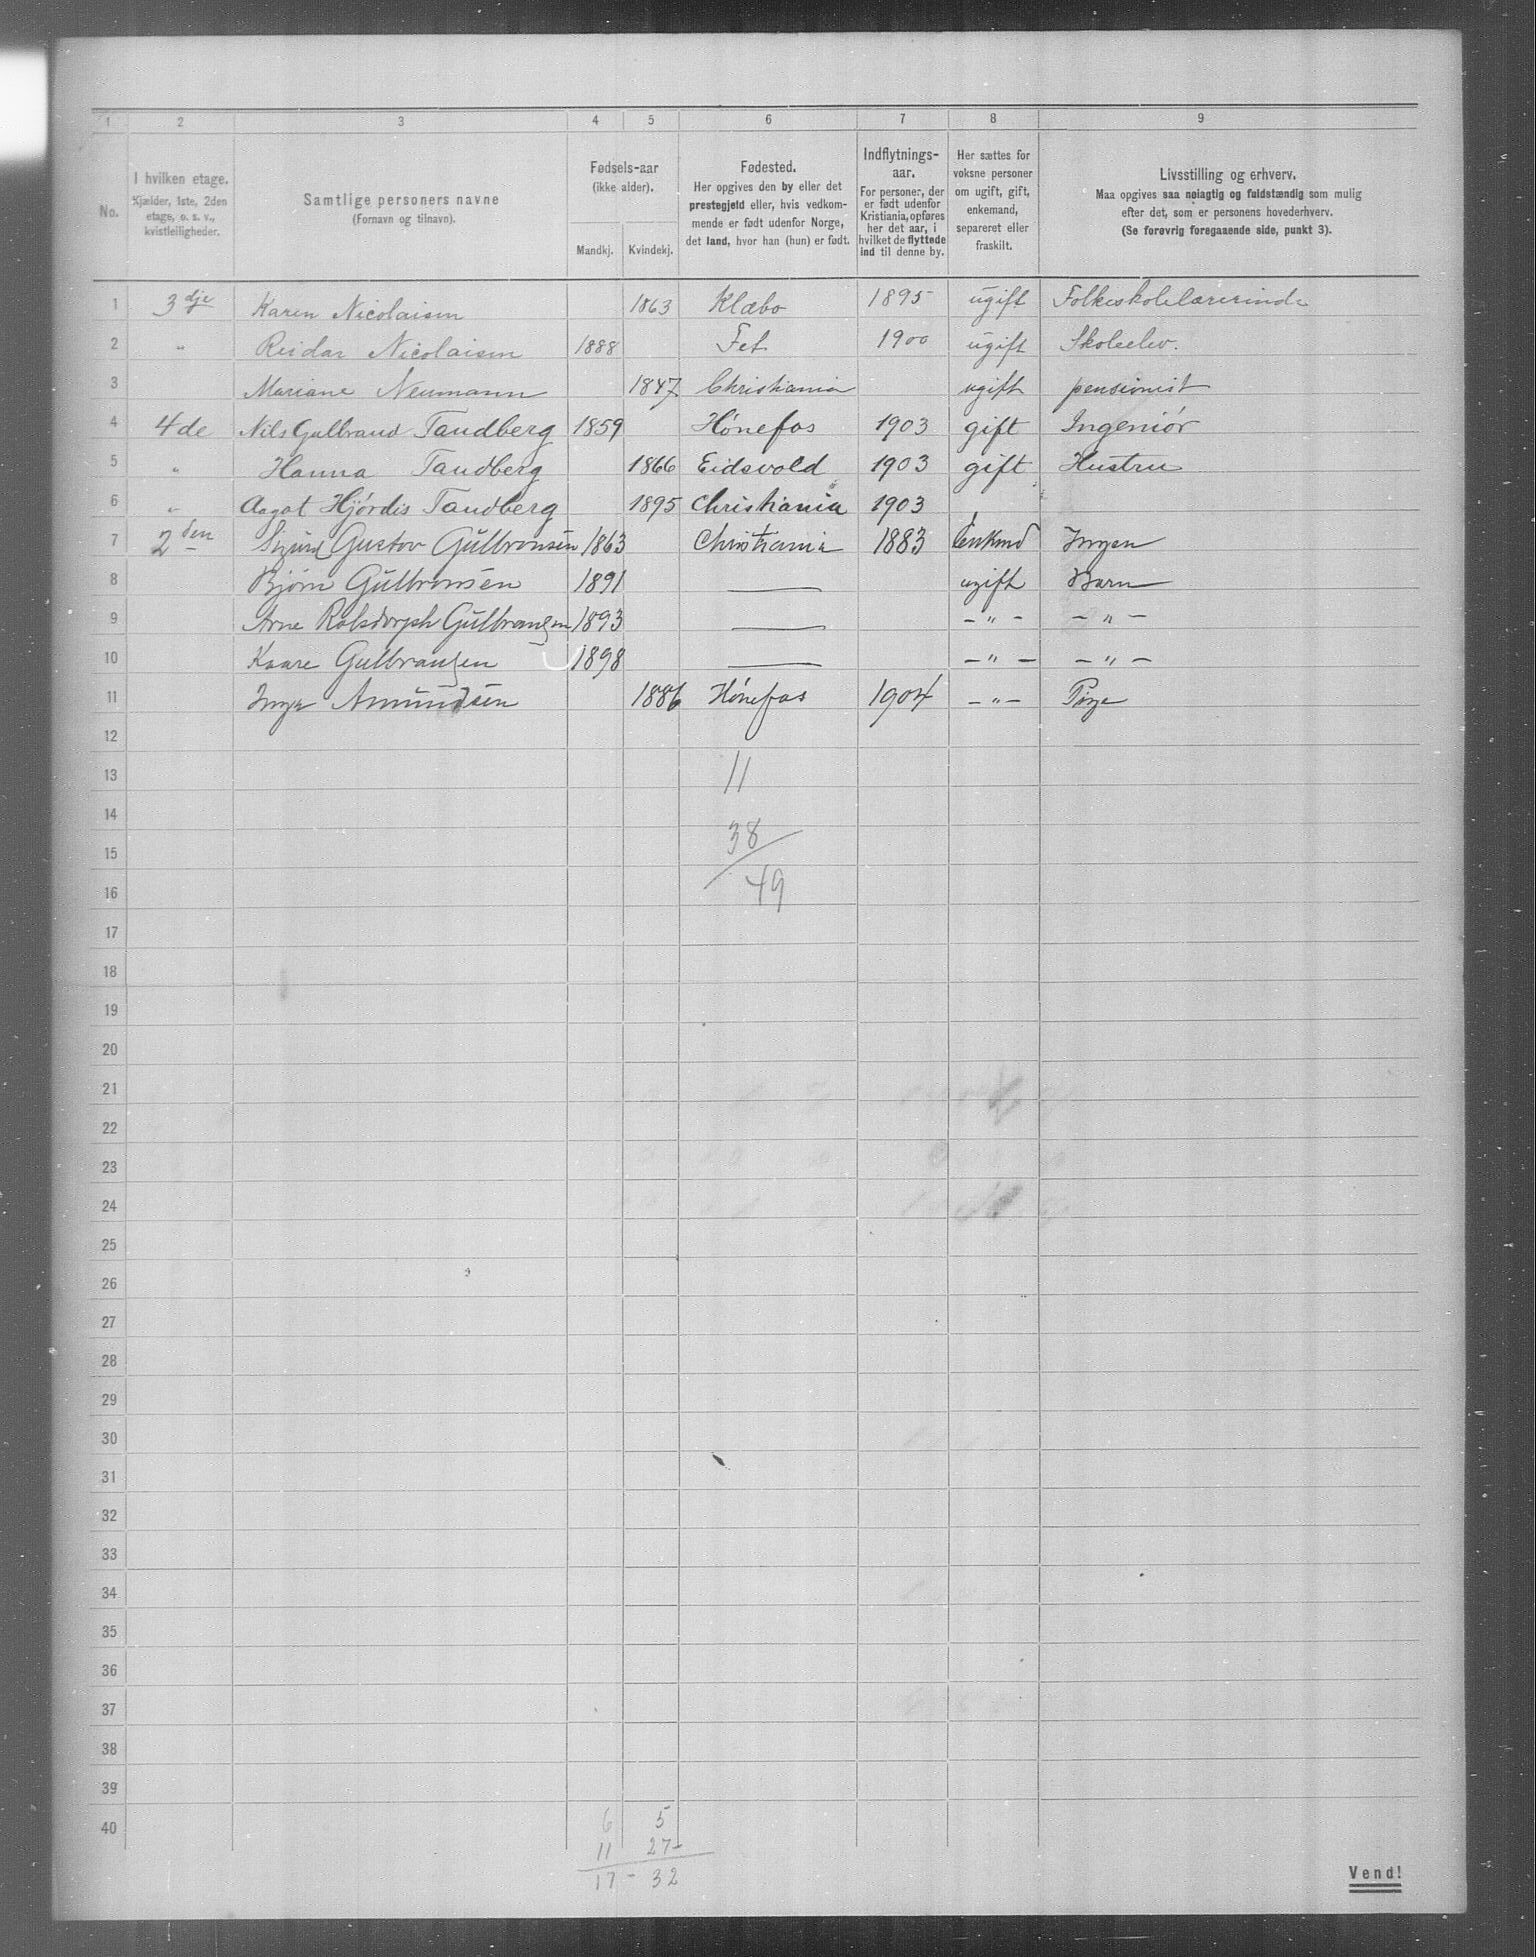 1 2 3 4 5 6 7 8 9
No.
I hvilken etage.
Kjælder, 1ste, 2den
etage, o. s. v.,
kvistleiligheder.
Samtlige personers navne
(Fornavn og tilnavn).
Fødsels-aar
(ikke alder).
Mandkj. Kvindekj.
Fødested.
Her opgives den by eller det
prestegjeld eller, hvis vedkom-
mende er født udenfor Norge,
det land, hvor han (hun) er født.
Indflytnings-
aar.
For personer, der
er født udenfor
Kristiania, opføres
her det aar, i
hvilket de flyttede
ind til denne by.
Her sættes for
voksne personer
om ugift, gift,
enkemand,
separeret eller
fraskilt.
Livsstilling og erhverv.
Maa opgives saa nøiagtig og fuldstændig som mulig
efter det, som er personens hovederhverv.
(Se forøvrig foregaaende side, punkt 3).
1 3dje Karen Nicolaisen 1863 Klæbo 1895 ugift Folkeskolelærerinde
2 " Reidar Nicolaisen 1888 Fet 1900 ugift Skoleelev.
3 Mariane Neumann 1847 Christiania ugift pensionist
4 4de Nils Gulbrand Tandberg 1859 Hónefos 1903 gift Ingeniór
5 " Hanna Tandberg 1866 Eidsvold 1903 gift Hustru
6 " Aagot Hjórdis Tandberg 1895 Christiania 1903
7 2den Gustov Gulbronsen 1863 Christiania 1883 Enkmd Ingen
8 Bjørn Gulbronsen 1891 — ugift Barn
9 Arne Rolsdorph Gulbransen 1893 — -"- -"-
10 Kaare Gulbransen 1898 — -"- -"-
11 Inga Amundsen 1886 Hónefos 1904 -"- Pige
12
13 11
14
15 38
16 49
17
18
19
20
21
22
23
24
25
26
27
28
29
30
31
32
33
34
35
36
37
38
39
40 6 5
11 27-
17 - 32
Vend!